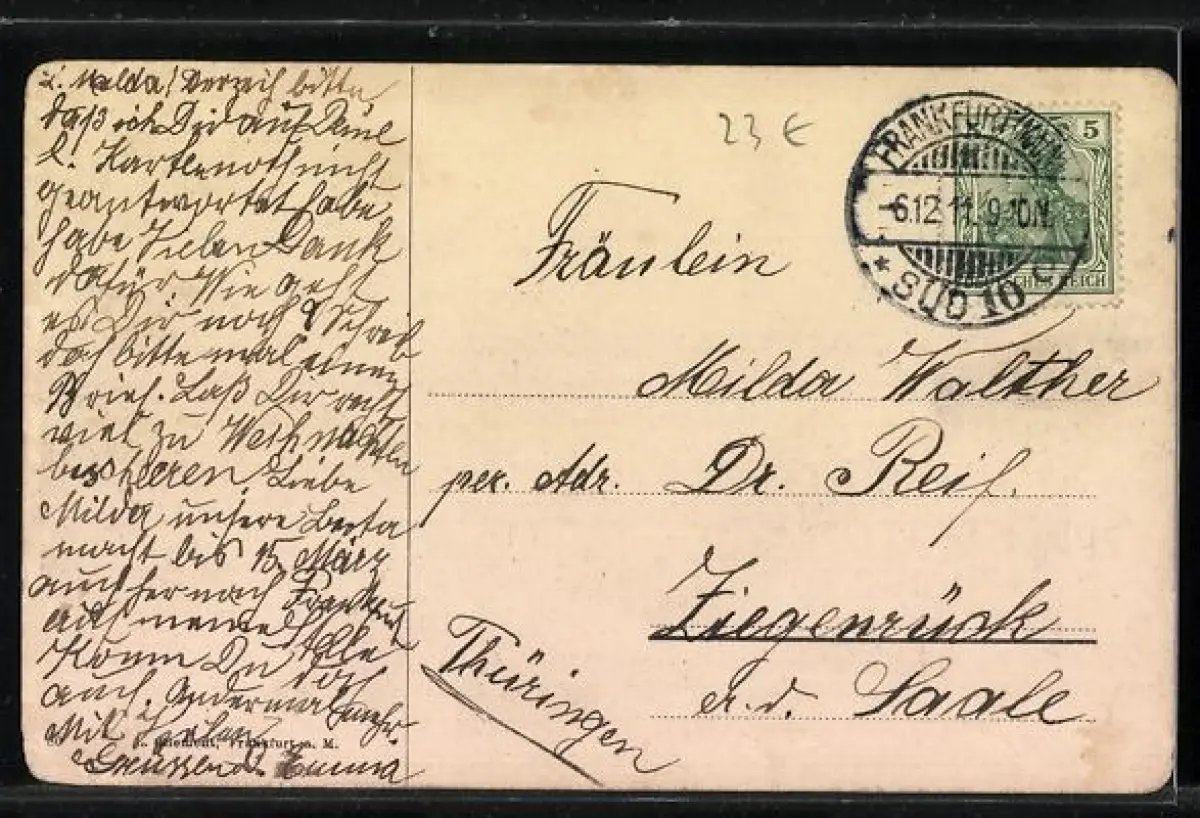 L. Milda! Verzeih bitte
daß ich Dir auf Deine
l. Karte noch nicht
geantwortet habe
habe Vielen Dank
dafür Wie geht
es Dir noch? Schreib
doch bitte mal einen
Brief. Laß Dir recht
viel zu Weihnachten
bescheren Liebe
Milda unsere Berta
macht bis 15. März
auch her nach Frankfurt
auf meine Stelle
Komm Du doch
auch. Andermal mehr.
Mit vielen
Grüssen d. Emma
Clement, Frankfurt a. M.
23 €
FRANKFURT (MAIN)
6.12.11. 9-10N.
* SÜD 10 c
5
Fräulein
Milda Walther
per. Adr. Dr. Reif.
Ziegenrück
a.d. Saale
Thüringen